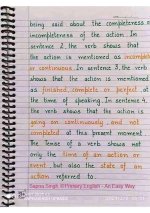 being said about the completeness or
incompleteness of the action. In
sentence 2, the verb shows that
the action is mentioned as incomplete
or continuous. In sentence 3, the verb
shows that the action is mentioned
as finished, complete or perfect, at
the time of speaking. In sentence 4,
the verb shows that the action is
going on continuously, and not
completed at this present moment.
The tense of a verb shows not
only the time of an action or
event, but also the state of an
action referred to.
Sapna Singh, @Primary English - An Easy Way